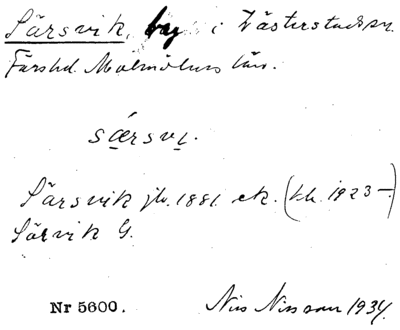 Särsvik, by i Västerstads sn.
Färs hd. Malmöhus län.
särsvi.
Särsvik jb. 1881. ek. (kk. 1923 –)
Särvik G.
Nr 5600. Nils Nilsson 1934.